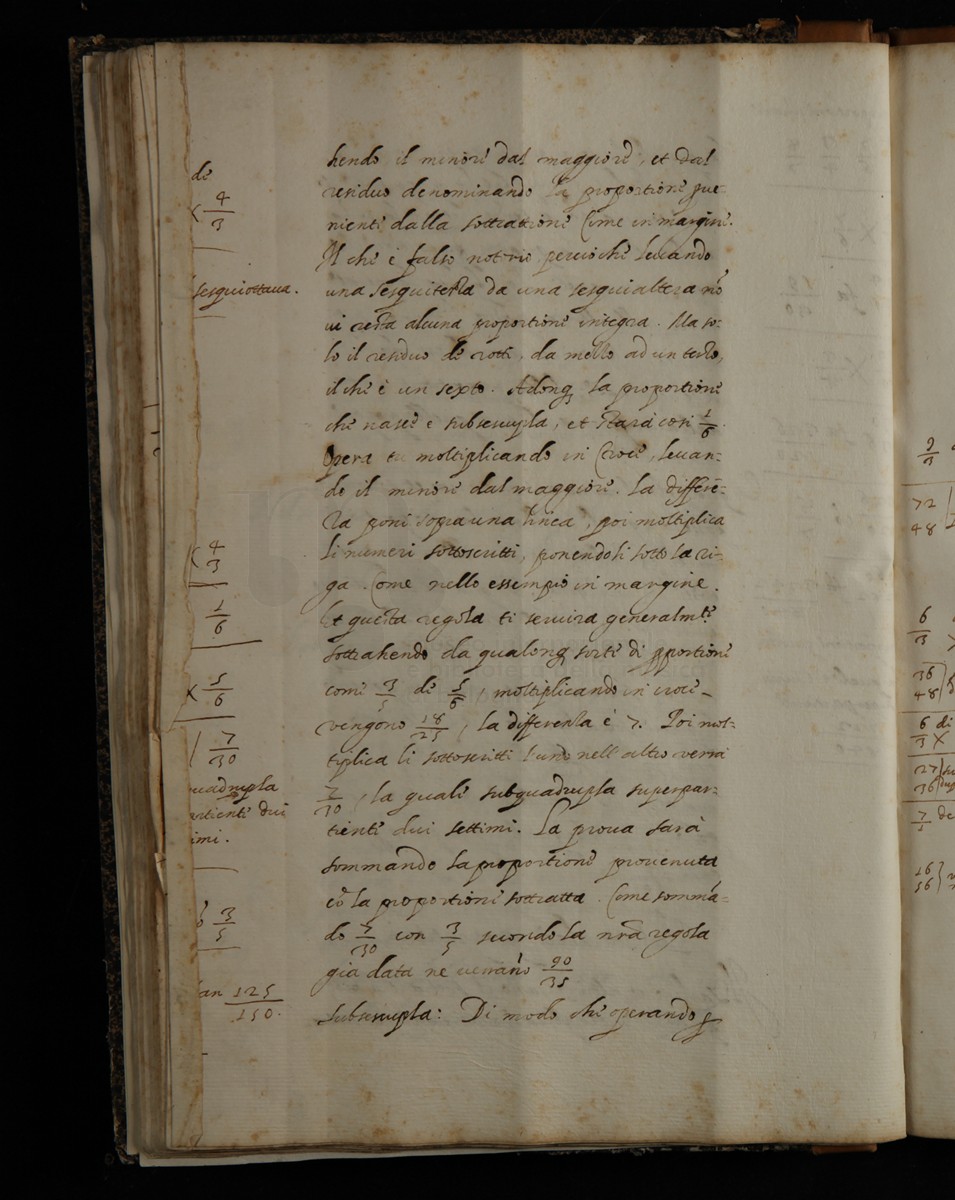 de
4
3
sesquiottaua.
4
3
1
6
x 5
6
7
30
uadrupla
rtienti dui
imi.
3
5
an 125
150.
hendo il minore dal maggiore, et dal
residuo denominando la proportione
nienti dalla sottrattione Come in margine.
Il che è falso percioche leuando
una sesquiterza da una sesquialtera nõ
ui resta alcuna proportione integra. Ma so-
lo il residuo de rotti, da mezzo ad un terzo,
il che è un sexto. Adonq3 la proportione
che nasce e subsescupla, et stara cosi 1/6.
Opera tu moltiplicando in Croce, leuan-
do il minore dal maggiore. La differẽ-
za poni sopra una linea, poi moltiplica
li numeri sottoscritti, ponendoli sotto la ri-
ga. Come nello essempio in margine.
Et questa regola ti seruira generalmte
sottrahendo da qualonq3 sorte di pportione
come 3/5 de 5/6, moltiplicando in croce
vengono 18/25, la differenza è 7. Poi mol-
tiplica li sottoscritti l'uno nell'altro verra
7/30, la quale subquadrupla superpar-
tiente dui settimi. La proua sarà
sommando la proportione prouenuta
cõ la proportione sottratta. Come sommã-
do 7/30 con 3/5 secondo la nra regola
già data ne uerrano 90/35
subsescupla: Di modo che operando p
9
3
72
48
6
3
36
48
6 di
3 X
27
36
7 de
16
56